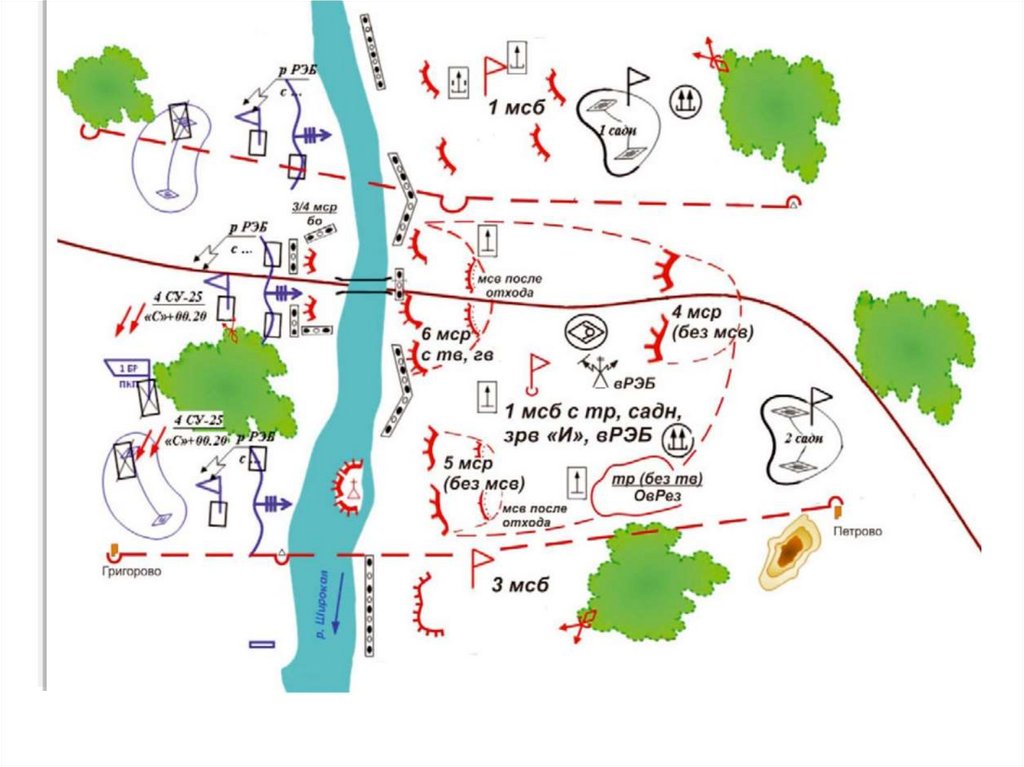 р РЭБ
с ...
1 мсб
1 садн
3/4 мср
бо
р РЭБ
с ...
мсв после
отхода
4 СУ-25
«С»+00.20
6 мср
с тв, гв
4 мср
(без мсв)
1 БР
ПКП
вРЭБ
1 мсб с тр, садн,
зрв «И», вРЭБ
4 СУ-25
«С»+00.20
р РЭБ
с ...
2 садн
5 мср
(без мсв)
тр (без тв)
ОвРез
мсв после
отхода
Петрово
Григорово
3 мсб
р. Широкая